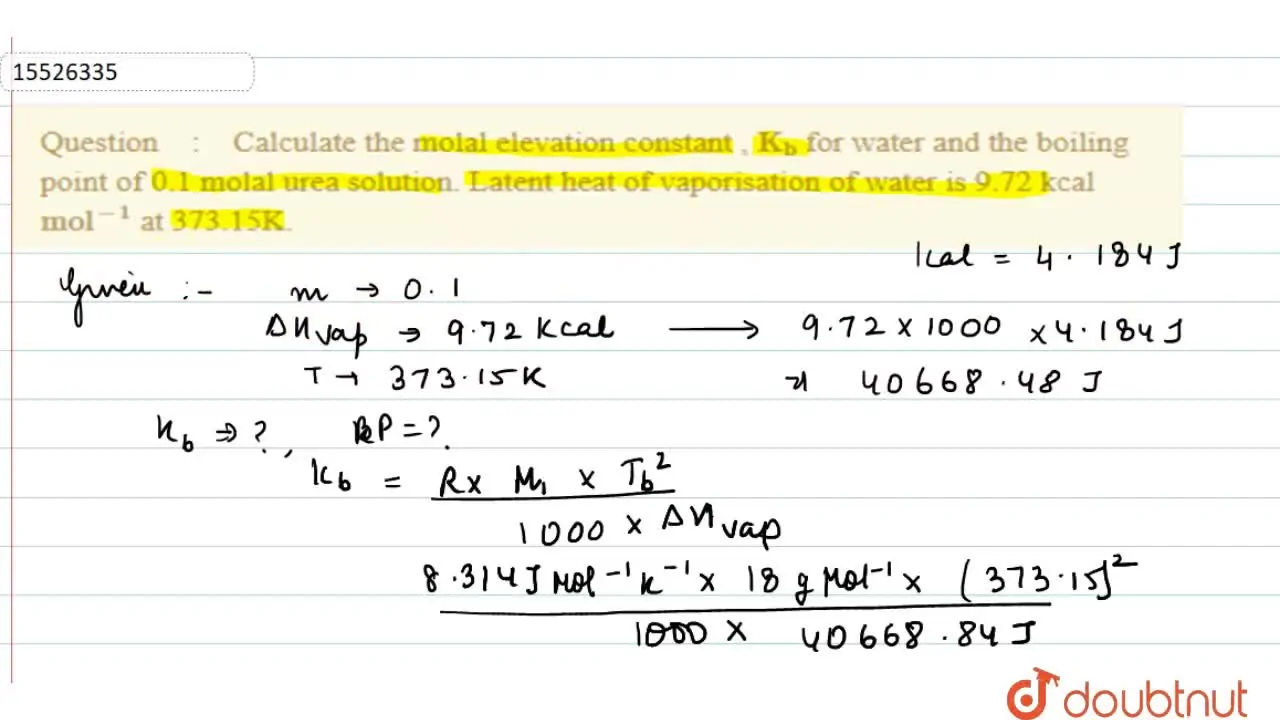 15526335
Question : Calculate the molal elevation constant , K_b for water and the boiling
point of 0.1 molal urea solution. Latent heat of vaporisation of water is 9.72 kcal
mol⁻¹ at 373.15K.
1cal = 4.184J
Given :- m → 0.1
ΔHvap → 9.72 Kcal ⟶ 9.72 × 1000 × 4.184J
T → 373.15K ⇒ 40668.48 J
K_b ⇒ ?, BP = ?.
K_b = R × M₁ × T_b²
1000 × ΔHvap
8.314J mol⁻¹ K⁻¹ × 18 g mol⁻¹ × (373.15)²
1000 × 40668.84J
doubtnut